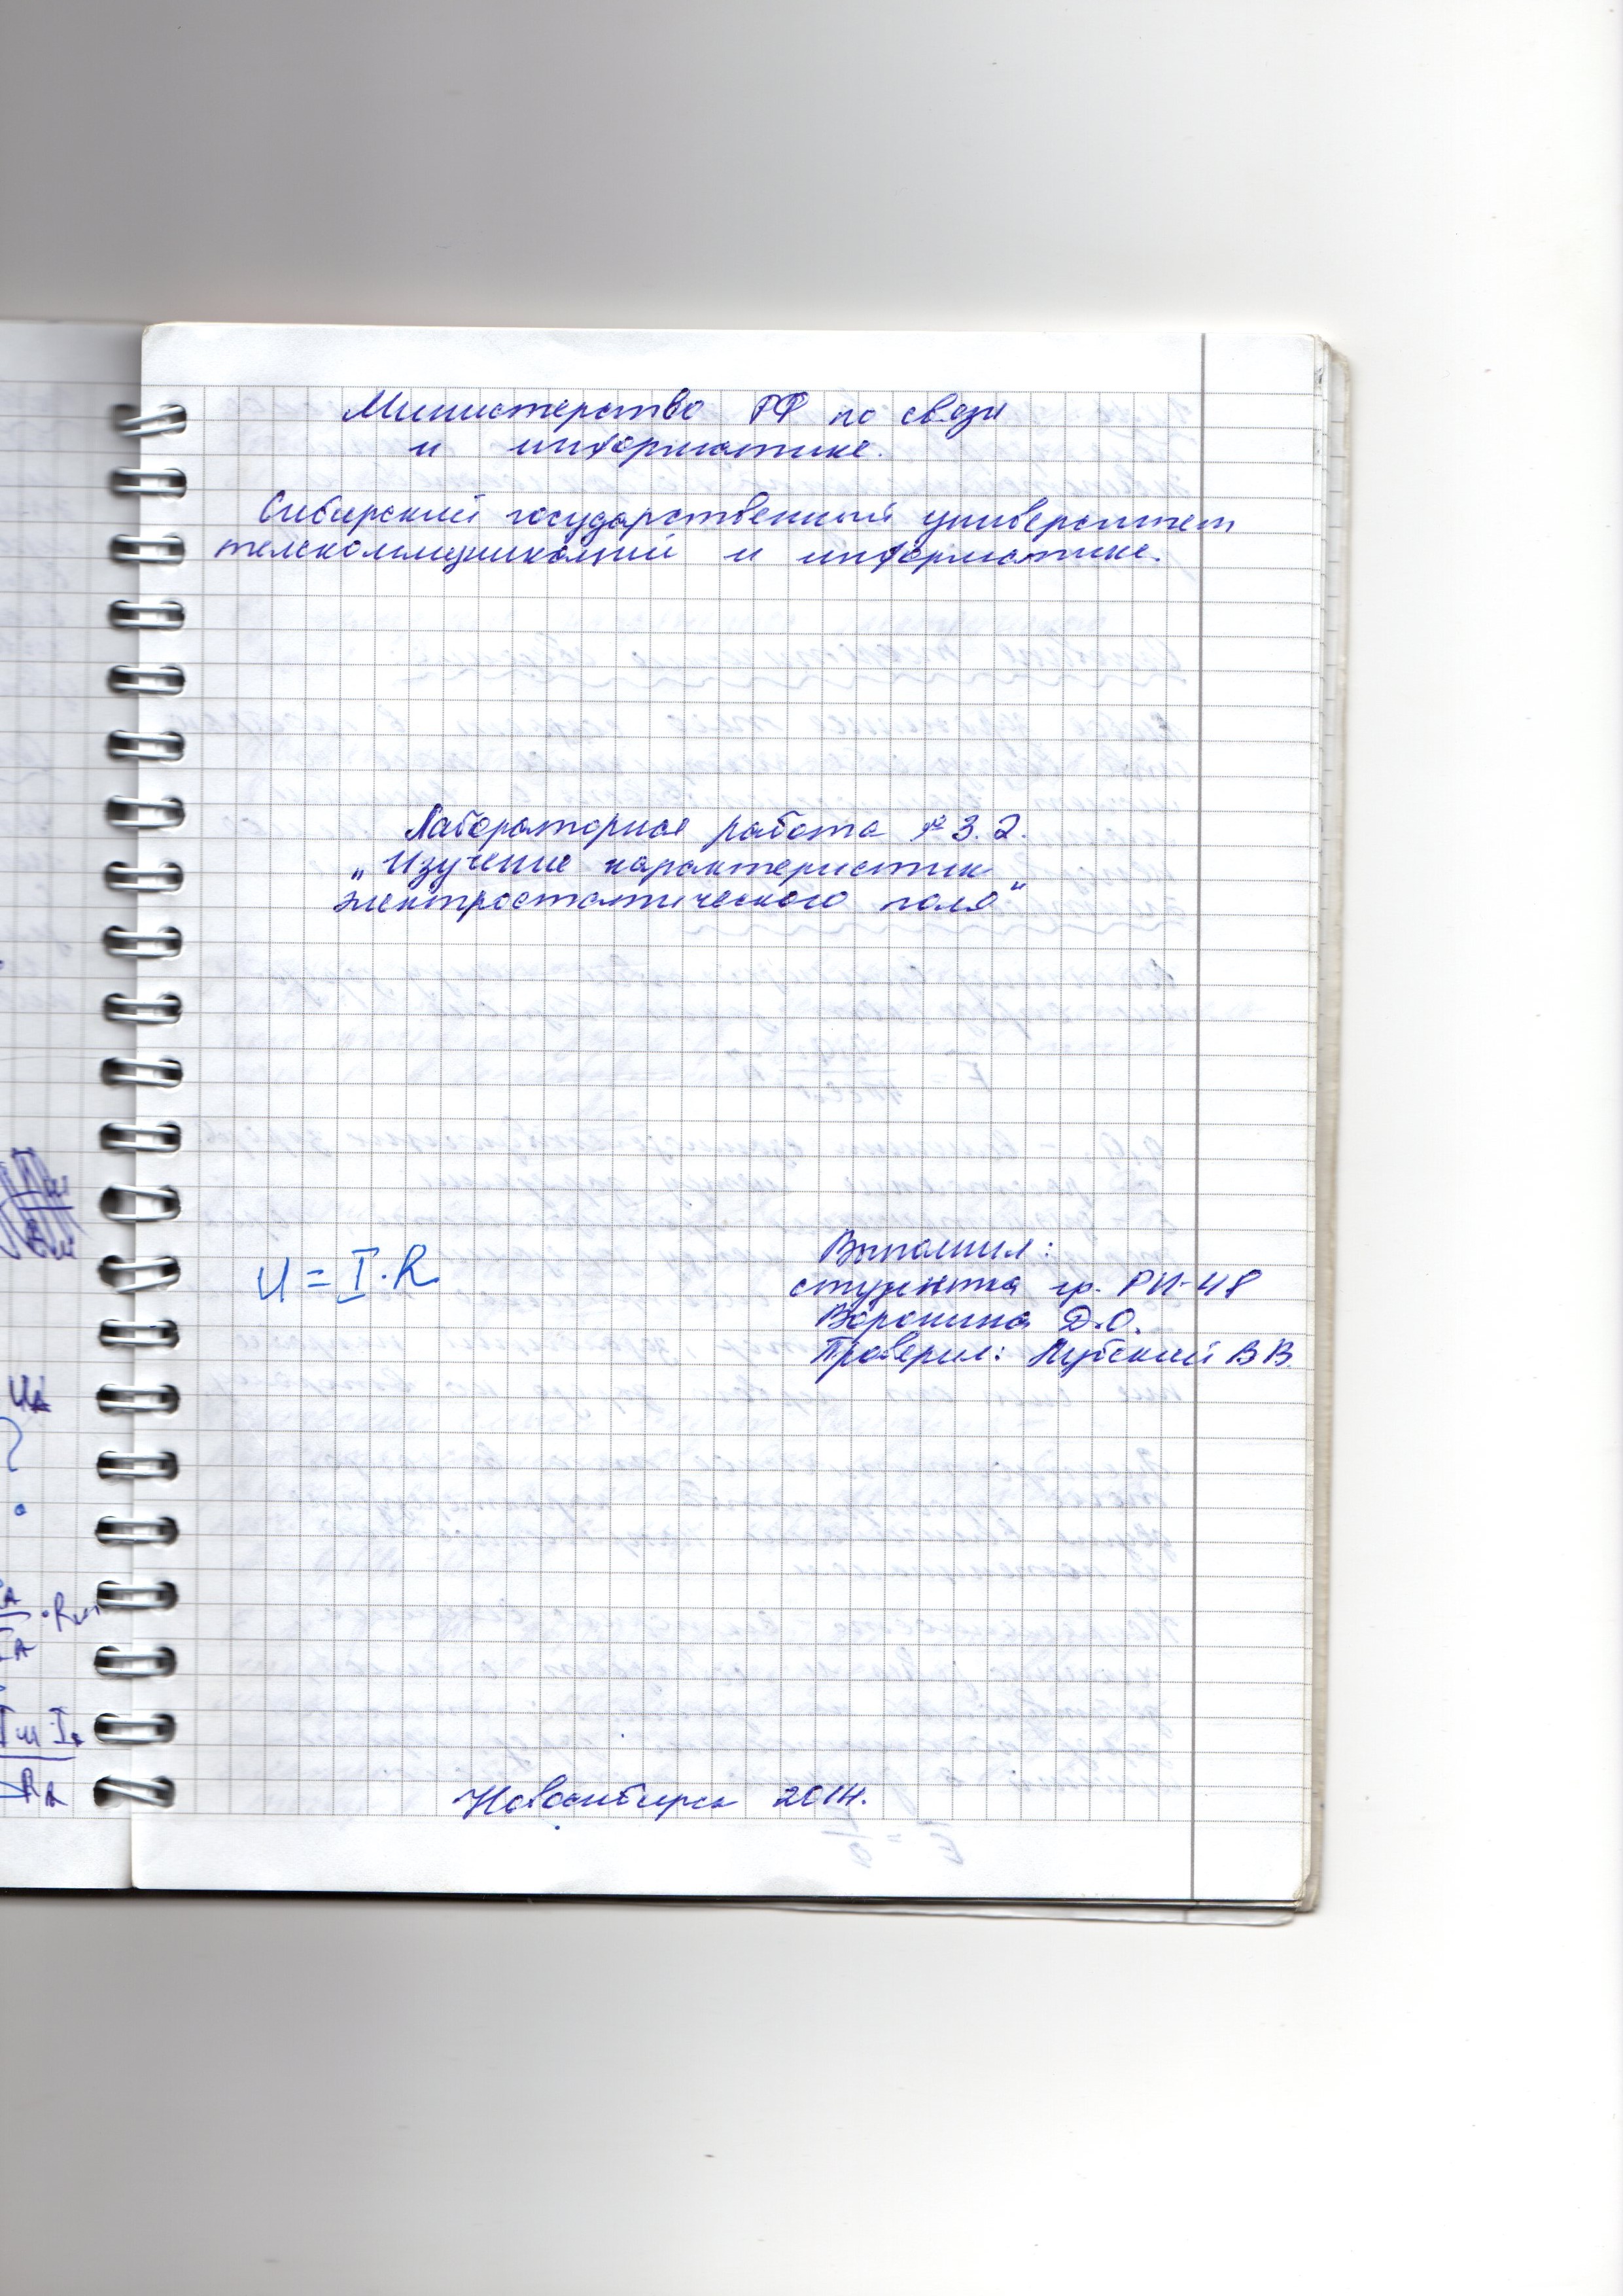 Министерство РФ по связи
и информатике.
Сибирский государственный университет
телекоммуникаций и информатике.
Лабораторная работа № 3.2.
„Изучение характеристик
электростатического поля“
U = I · R
Выполнил:
студентка гр. РИ-48
Воронина Д.О.
Проверил: Лубский В В.
Новосибирск 2014.